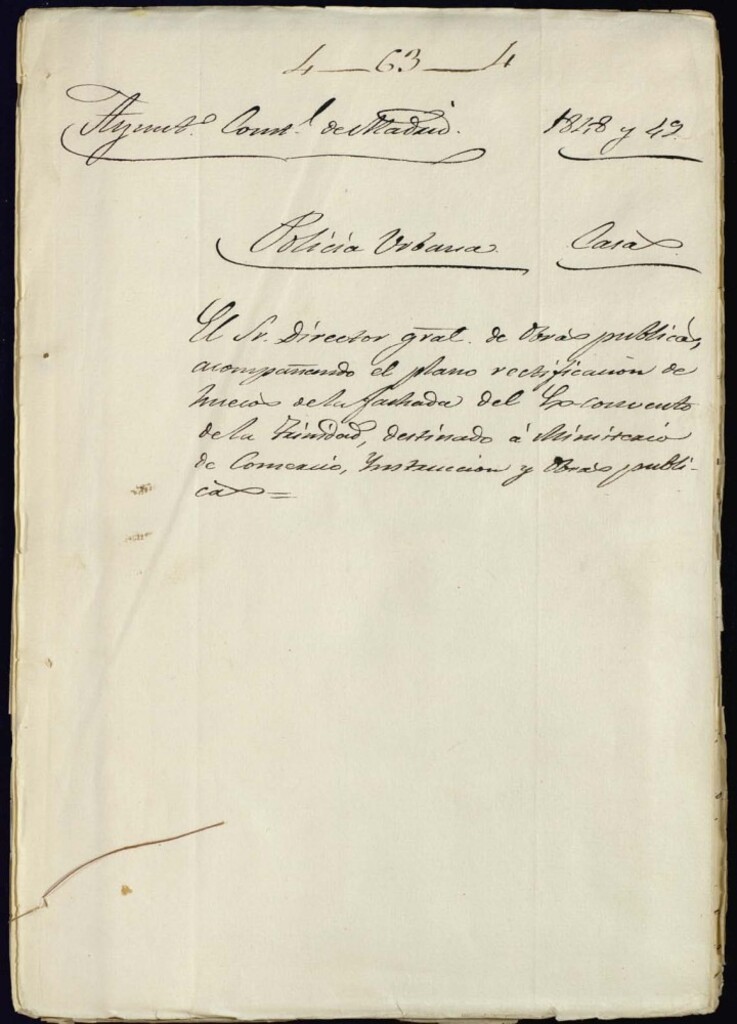 4 — 63 — 4
Ayuntº. Constl. de Madrid. 1848 y 49.
Policia Urbana. Casas
El Sr. Director gral. de Obras publicas,
acompañando el plano rectificacion de
huecos de la fachada del Ex-convento
de la Trinidad, destinado á Ministerio
de Comercio, Instruccion y Obras publi-
cas=